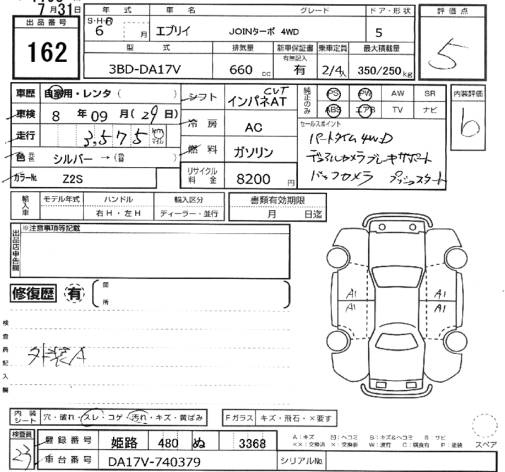 7月31日
出品番号
162
年式 車名 グレード ドア・形状
S・H・R 6 月 エブリイ JOINターボ 4WD 5
型式 排気量 新車保証書 有無記入 乗車定員 最大積載量
3BD-DA17V 660 cc 有 2/4人 350/250kg
評価点
5
内装評価
b
車歴 自家用・レンタ( )
車検 8年 09月(29日)
走行 3,575 km
色 シルバー →( )
カラーNo. Z2S
シフト CVT インパネAT
冷房 AC
燃料 ガソリン
リサイクル料金 8200円
純正のみ PS PW AW SR
ABS エアB TV ナビ
セールスポイント
パートタイム4WD
デュアルカメラブレーキサポート
バックカメラ プッシュスタート
輸入車 モデル年式 ハンドル 輸入区分
右H・左H ディーラー・並行
書類有効期限
月 日迄
出品店申告欄 ※注意事項等記載
修復歴 有 箇所
検査員記入欄
外装A
A1 A1
A1 A1
内装シート 穴・破れ・スレ・コゲ・汚れ・キズ・黄ばみ
Fガラス キズ・飛石・×要す
検査員
23
登録番号 姫路 480 ぬ 3368
車台番号 DA17V-740379
シリアルNo.
スペア